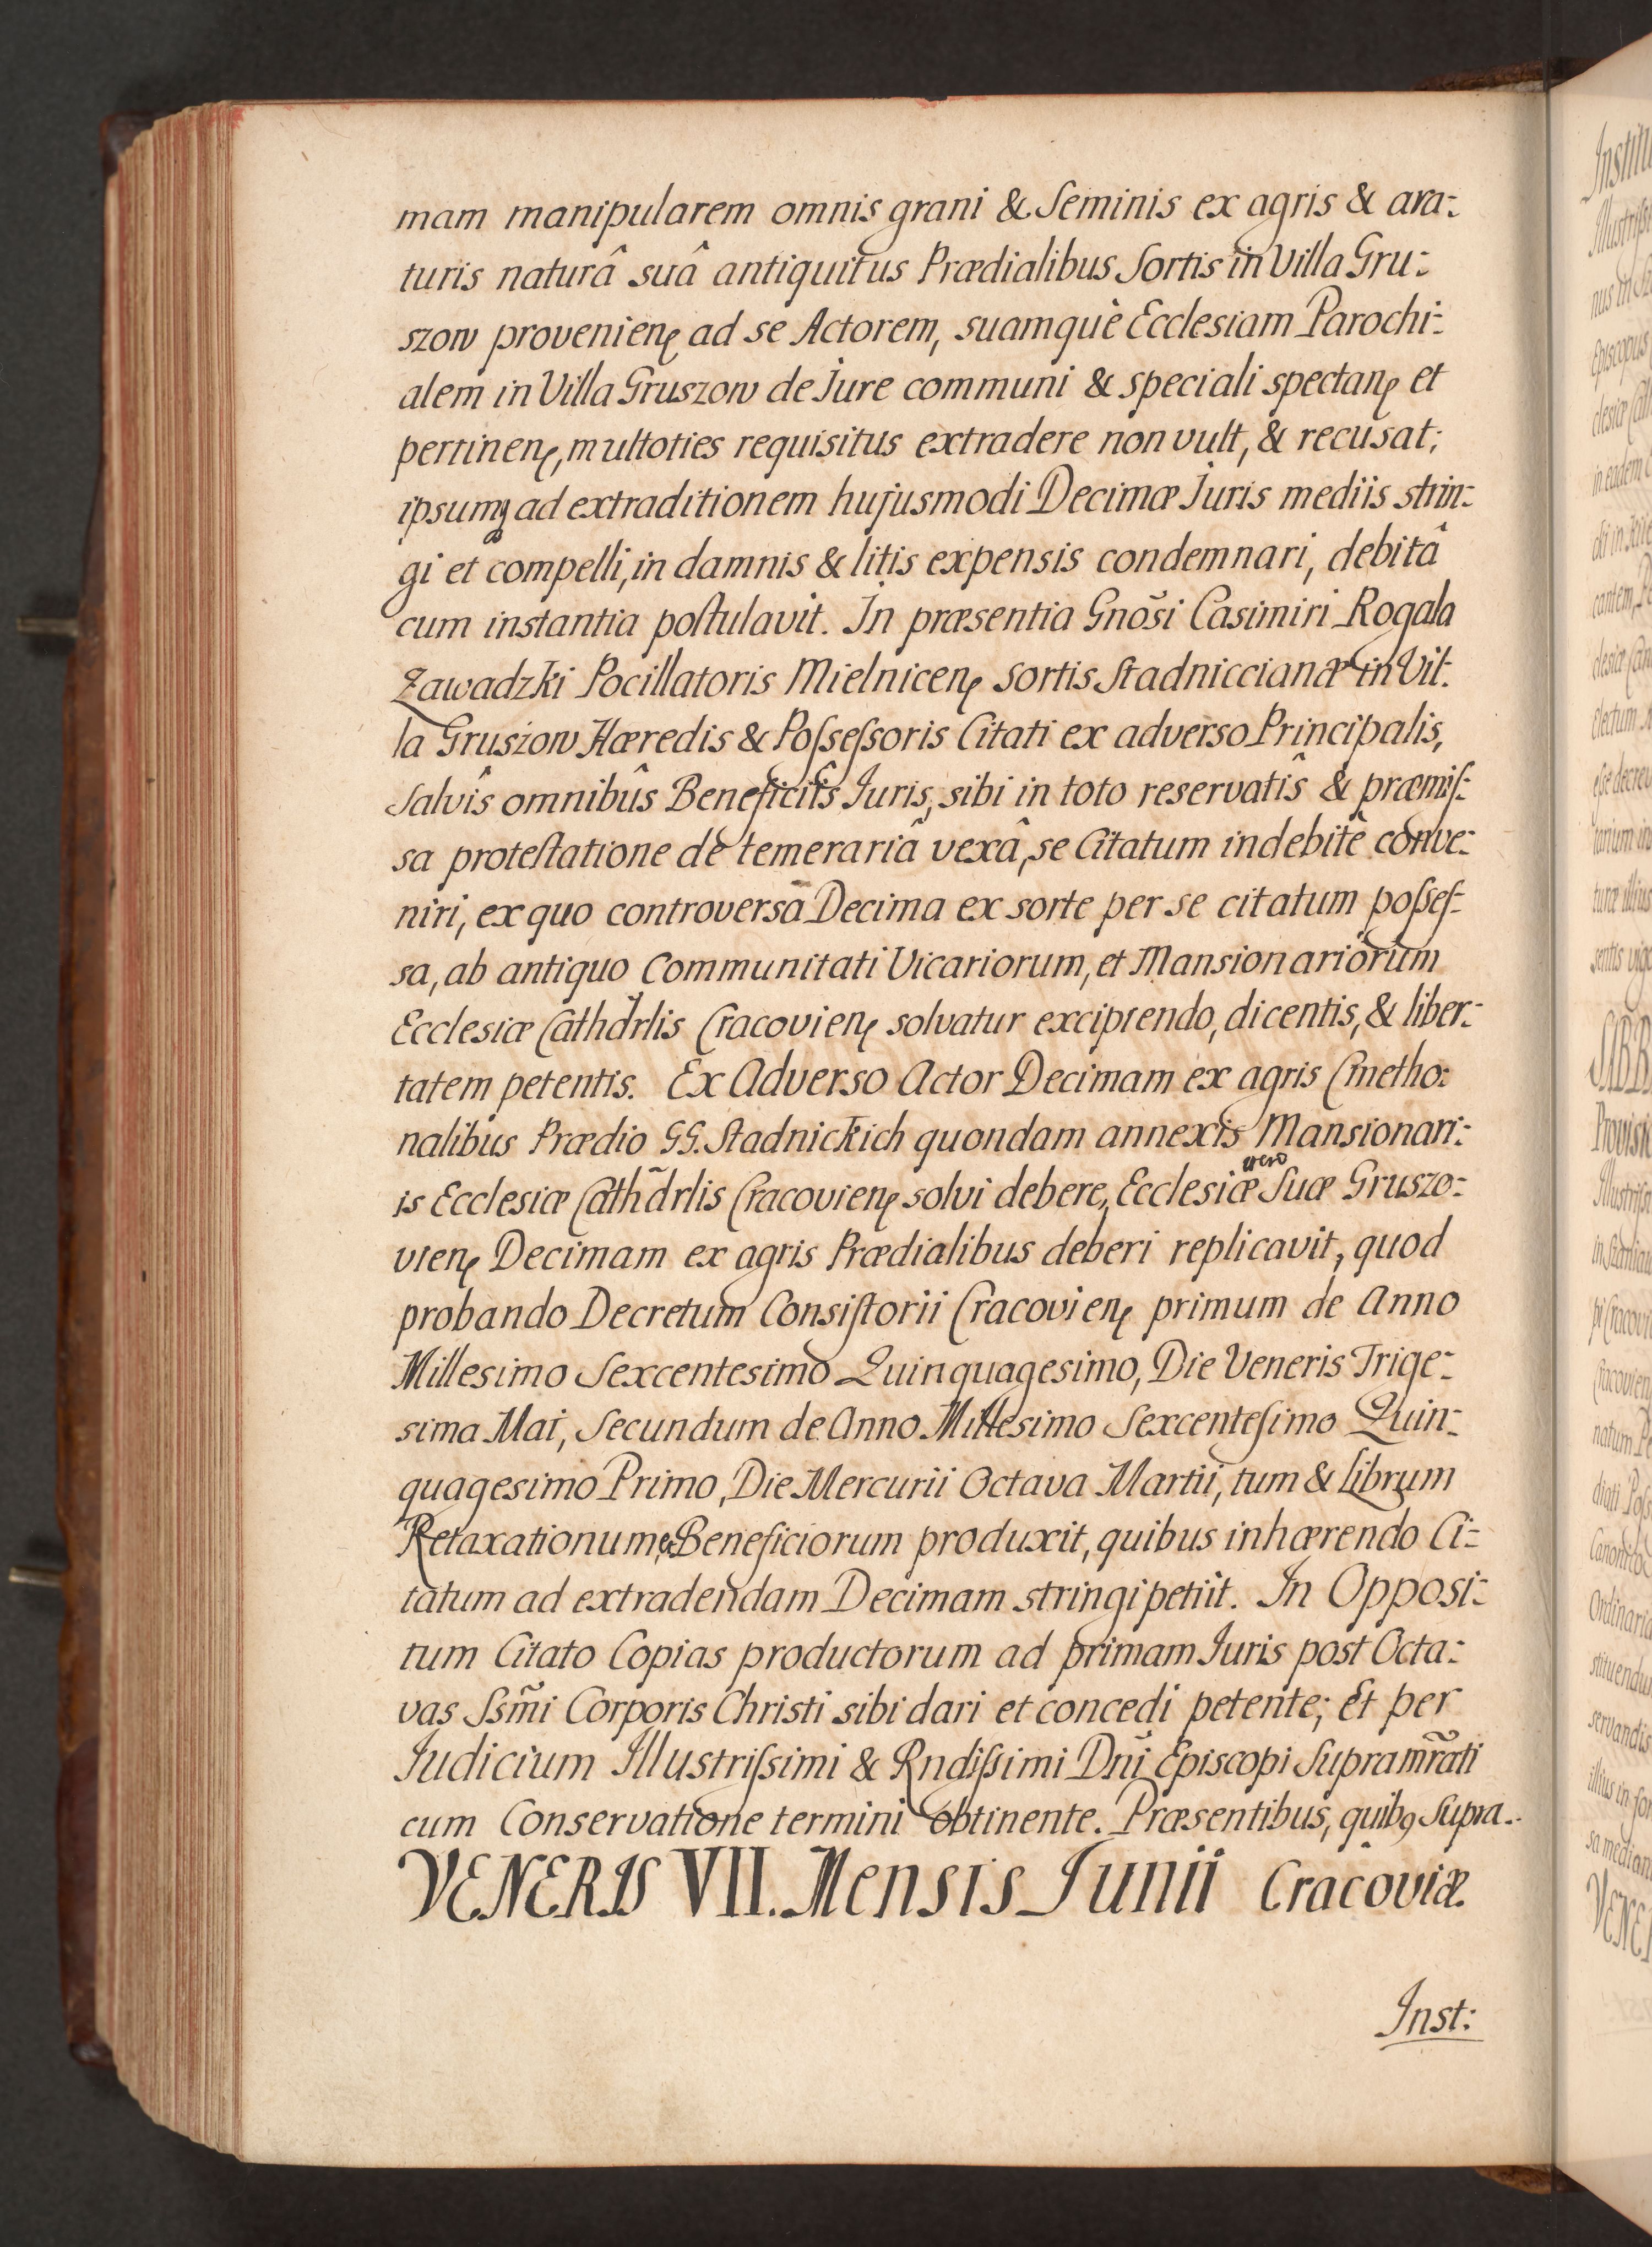 mam manipularem omnis grani & Seminis ex agris & ara:
turis naturâ suâ antiquitus Prædialibus Sortis in Villa Gru:
szow provenienę ad se Actorem, suamquè Ecclesiam Parochi:
alem in Villa Gruszow de Jure communi & speciali spectanę et
pertinenę, multoties requisitus extradere non vult, & recusat;
ipsumq ad extraditionem hujusmodi Decimæ Juris mediis strin:
gi et compelli, in damnis & litis expensis condemnari, debitâ
cum instantia poſtulavit. In præsentia Gnõsi Casimiri Rogala
Zawadzki Pocillatoris Mielnicenę sortis Stadniccianæ in Vil:
la Gruszow Hæredis & Poſseſsoris Citati ex adverso Principalis,
Salvîs omnibûs Beneficiîs Juris, sibi in toto reservatîs & præmiſ:
sa proteſtatione de temerariâ vexâ, se Citatum indebitê conve:
niri, ex quo controversa Decima ex sorte per se citatum poſseſ:
sa, ab antiquo Communitati Vicariorum, et Mansionariorum
Ecclesiæ Cathdrlis Cracovienę solvatur excipiendo, dicentis, & liber:
tatem petentis. Ex Adverso Actor Decimam ex agris Cmetho:
nalibus Prædio GG. Stadnickich quondam annexis Mansionari:
is Ecclesiæ Cathd̃rlis Cracovienę solvi debere, Ecclesiæ vero Suæ Gruszo:
vienę Decimam ex agris Prædialibus deberi replicavit, quod
probando Decretum Consiſtorii Cracovienę primum de Anno
Millesimo Sexcentesimo Quinquagesimo, Die Veneris Trige:
sima Mai, Secundum de Anno Millesimo Sexcenteſimo Quin:
quagesimo Primo, Die Mercurii Octava Martii, tum & Librum
Retaxationum & Beneficiorum produxit, quibus inhærendo Ci:
tatum ad extradendam Decimam stringi petiit. In Opposi:
tum Citato Copias productorum ad primam Juris post Octa:
vas Ssm̃i Corporis Christi sibi dari et concedi petente; Et per
Judicium Illustriſsimi & Rndiſsimi Dnĩ Episcopi Supramr̃ati
cum Conservatione termini obtinente. Præsentibus, quibꝯ Supra.
VENERIS VII. Mensis Junii Cracoviæ.
Inst: